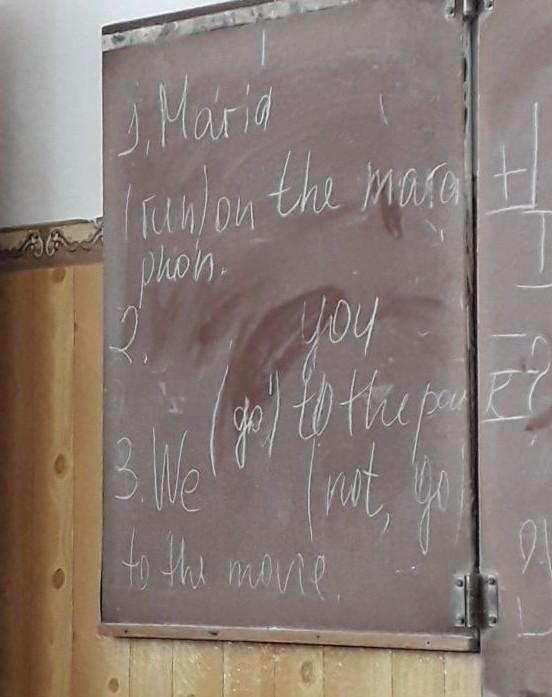 1. Maria
(run) on the mara
phon.
2. you
(go) to the park?
3. We (not, go)
to the movie.